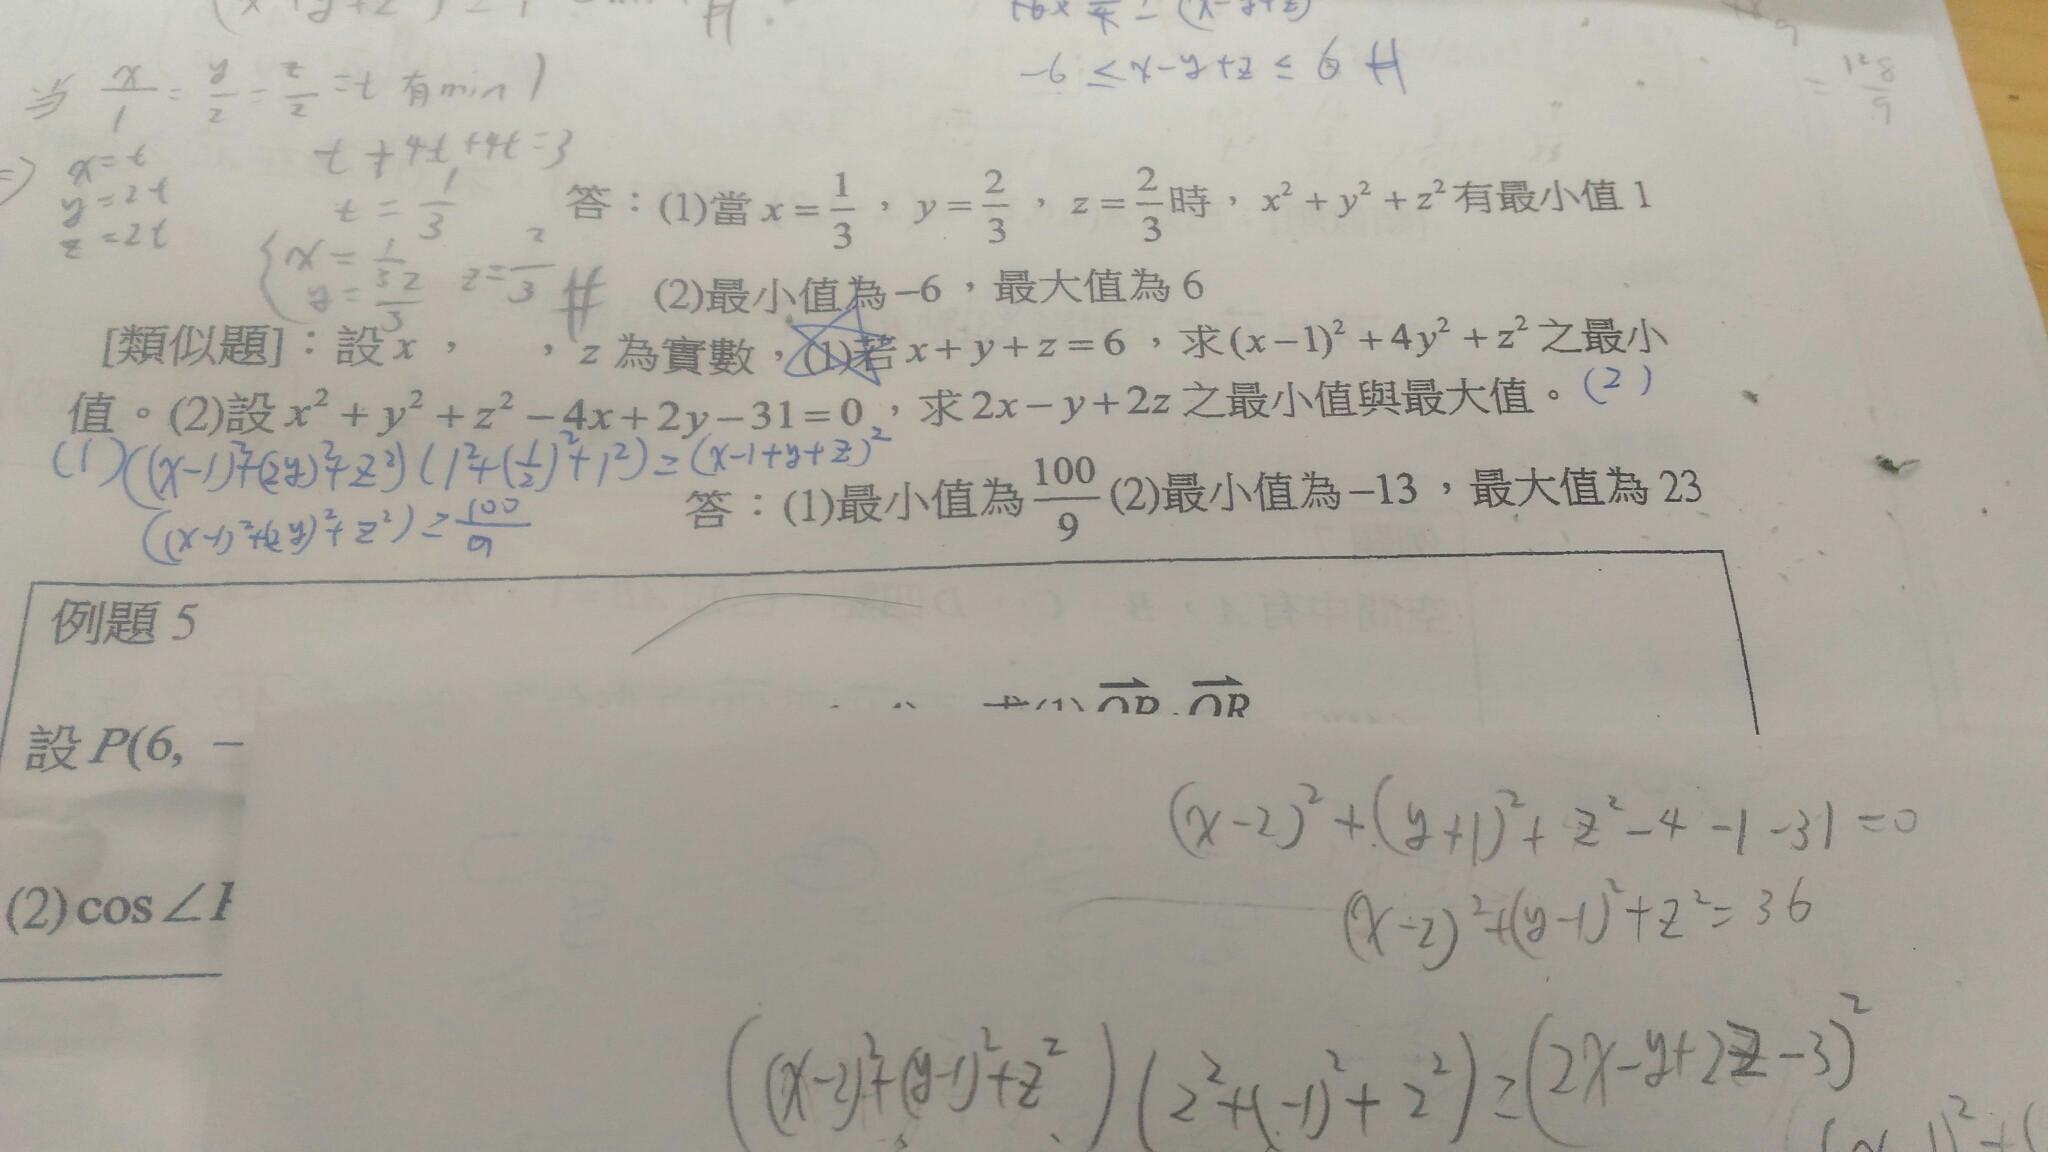 +6x
(x-y+z)
-6 ≤ x-y+z ≤ 6 #
當 x/1 = y/2 = z/2 = t 有min 1
= 128/9
x=t
y=2t
z=2t
t+4t+4t=3
t = 1/3
{ x = 1/3 z = 2/3 #
y = 2/3
答:(1)當 x = 1/3,y = 2/3,z = 2/3 時,x² + y² + z² 有最小值 1
(2)最小值為 −6,最大值為 6
[類似題]:設 x, ,z 為實數,(1)若 x + y + z = 6,求 (x − 1)² + 4y² + z² 之最小
值。(2)設 x² + y² + z² − 4x + 2y − 31 = 0,求 2x − y + 2z 之最小值與最大值。(2)
(1)((x-1)²+(2y)²+z²)(1²+(1/2)²+1²) ≥ (x-1+y+z)²
((x-1)²+(2y)²+z²) ≥ 100/9
答:(1)最小值為 100/9 (2)最小值為 −13,最大值為 23
例題 5
設 P(6, −
(2) cos∠
(x-2)²+(y+1)²+z²-4-1-31=0
(x-2)²+(y-1)²+z²=36
((x-2)²+(y-1)²+z²)(2²+(-1)²+2²) ≥ (2x-y+2z-3)²